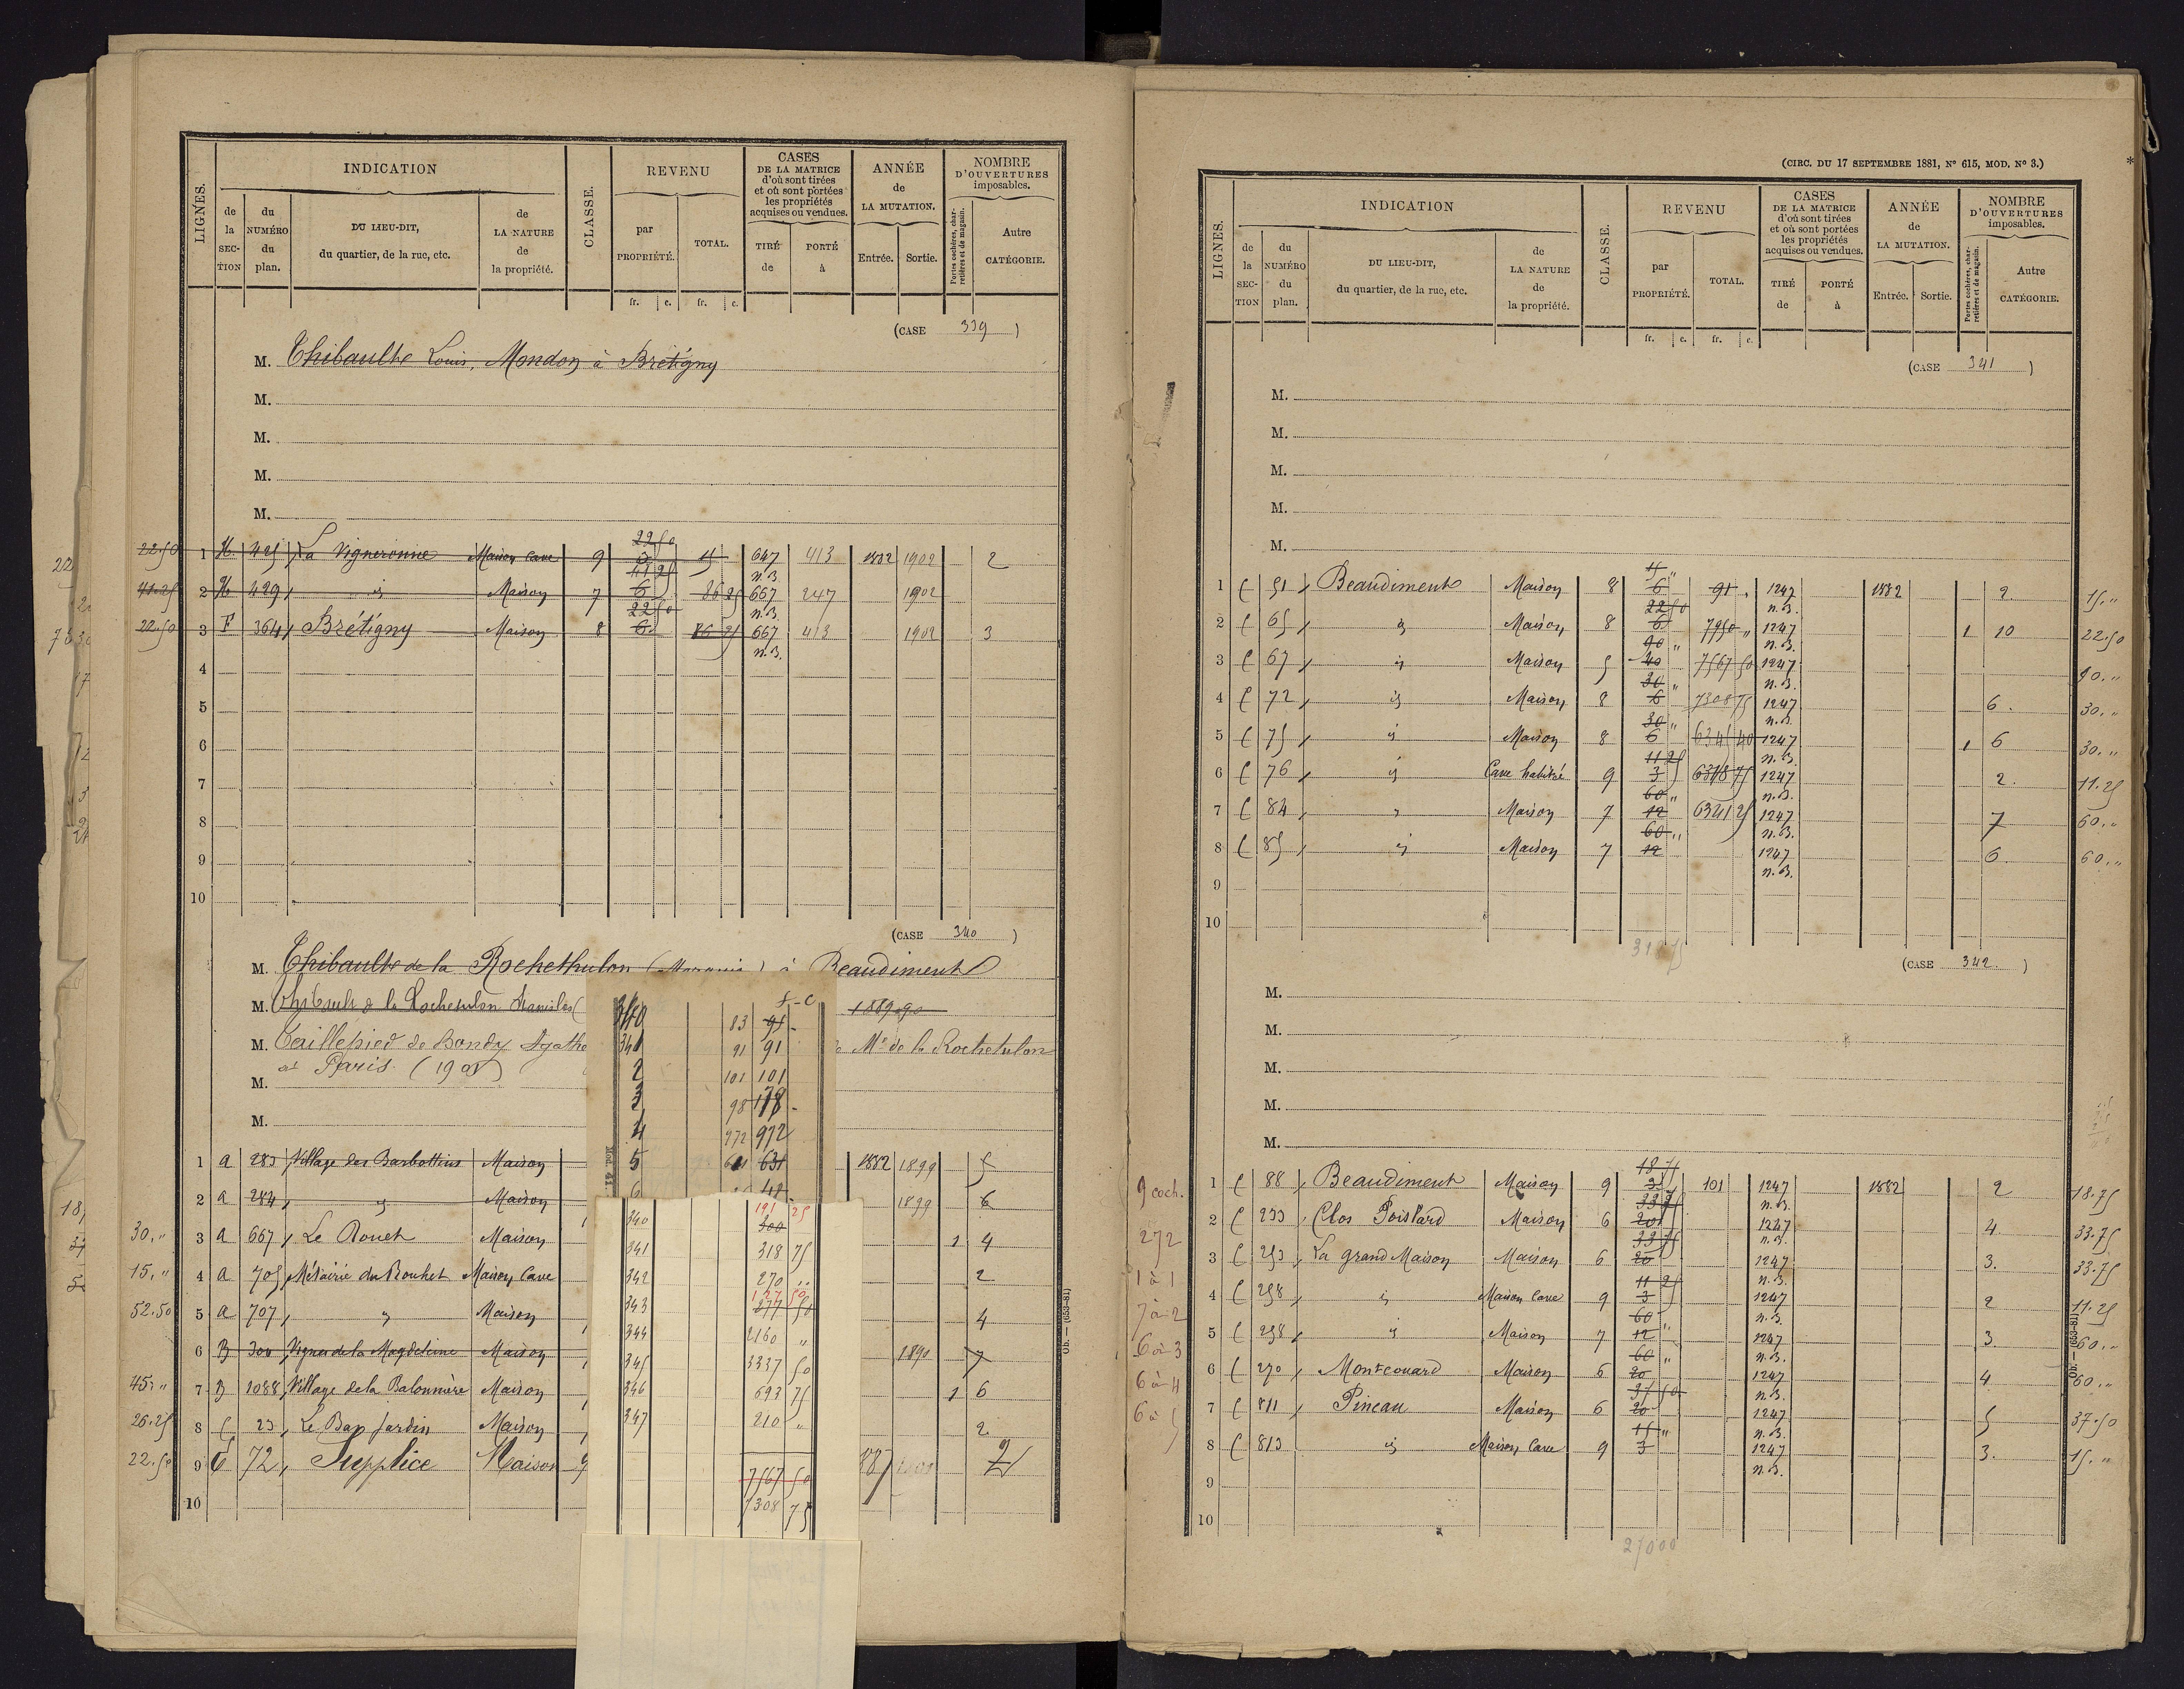 LIGNES.
INDICATION
de la SECTION
du NUMÉRO du plan.
DU LIEU-DIT, du quartier, de la rue, etc.
de LA NATURE de la propriété.
CLASSE.
REVENU
par PROPRIÉTÉ.
TOTAL.
CASES DE LA MATRICE d'où sont tirées et où sont portées les propriétés acquises ou vendues.
TIRÉ de
PORTÉ à
ANNÉE de LA MUTATION.
Entrée.
Sortie.
NOMBRE D'OUVERTURES imposables.
Portes cochères, charretières et de magasin.
Autre CATÉGORIE.
fr. c. fr. c.
(CASE 339 )
M. Thibaulte Louis, Mondon à Brétigny
M.
M.
M.
M.
22.50 1 H. 425 La Vigneronnie Maison Cave 9 22 50 3 15 647 n.B. 413 1882 1902 2
41.25 2 H. 429 id Maison 7 41 25 6 86 25 667 n.B. 247 1902
22.50 3 F 364 Brétigny Maison 8 22 50 6 86 25 667 n.B. 413 1902 3
4
5
6
7
8
9
10
(CASE 340 )
M. Thibaulte de la Rochethulon (Marquis) à Beaudiment
M. Thibault de la Rochethulon Stanislas ( 1889-90
M. Taillepied de Bondy Agathe de Mis de la Rochethulon
M. à Paris (1908)
M.
1 A 283 Village des Barbottins Maison 1882 1899 5
2 A 284 id Maison 1899 6
30 " 3 A 667 Le Rouet Maison 1 4
15 " 4 A 705 Métairie du Rouhet Maison Cave 2
52.50 5 A 707 " Maison 4
6 B 300 Vignes de la Magdeleine Maison 1890 7
45 " 7 B 1088 Village de la Balonnière Maison 1 6
26.25 8 C 23 Le Bas Jardin Maison 2
22.50 9 C 72 Supplice Maison 9 1887 2
10
f - c
340 83 91 -
341 91 91
2 101 101
3 98 178 -
4 972 972
5 631 631
6 48
340 191 25 300
341 318 75
342 270 ..
343 127 50 277 50
344 2160 "
345 3337 50
346 693 75
347 210 "
7567 50
7308 75
(CIRC. DU 17 SEPTEMBRE 1881, N° 615, MOD. N° 3.)
LIGNES.
INDICATION
de la SECTION
du NUMÉRO du plan.
DU LIEU-DIT, du quartier, de la rue, etc.
de LA NATURE de la propriété.
CLASSE.
REVENU
par PROPRIÉTÉ.
TOTAL.
CASES DE LA MATRICE d'où sont tirées et où sont portées les propriétés acquises ou vendues.
TIRÉ de
PORTÉ à
ANNÉE de LA MUTATION.
Entrée.
Sortie.
NOMBRE D'OUVERTURES imposables.
Portes cochères, charretières et de magasin.
Autre CATÉGORIE.
fr. c. fr. c.
(CASE 341 )
M.
M.
M.
M.
M.
1 C 51 Beaudiment Maison 8 15 " 6 91 1247 n.B. 1882 2 15 "
2 C 65 id Maison 8 22 50 6 7950 " 1247 n.B. 1 10 22.50
3 C 67 id Maison 5 90 " 40 7567 50 1247 n.B. 90 "
4 C 72 id Maison 8 30 " 6 7308 75 1247 n.B. 6 30 "
5 C 75 id Maison 8 30 " 6 6345 40 1247 n.B. 1 6 30 "
6 C 76 id Cave habitée 9 11 25 3 6318 75 1247 n.B. 2 11.25
7 C 84 " Maison 7 60 " 12 6341 25 1247 n.B. 7 60 "
8 C 85 id Maison 7 60 " 12 1247 n.B. 6 60 "
9
10
318 75
(CASE 342 )
M.
M.
M.
M.
M.
9 coch.
272
1 à 1
7 à 2
6 à 3
6 à 4
6 à 5
1 C 88 Beaudiment Maison 9 18 75 3 101 1247 n.B. 1882 2 18.75
2 C 233 Clos Poislard Maison 6 33 75 20 1247 n.B. 4 33.75
3 C 253 La grand Maison Maison 6 33 75 20 1247 n.B. 3 33.75
4 C 258 id Maison Cave 9 11 25 3 1247 n.B. 2 11.25
5 C 258 id Maison 7 60 " 12 1247 n.B. 3 60 "
6 C 270 Montcouard Maison 6 60 " 20 1247 n.B. 4 60 "
7 C 811 Pineau Maison 6 37 50 20 1247 n.B. 5 37.50
8 C 813 id Maison Cave 9 15 " 3 1247 n.B. 3 15 "
9
10
27000